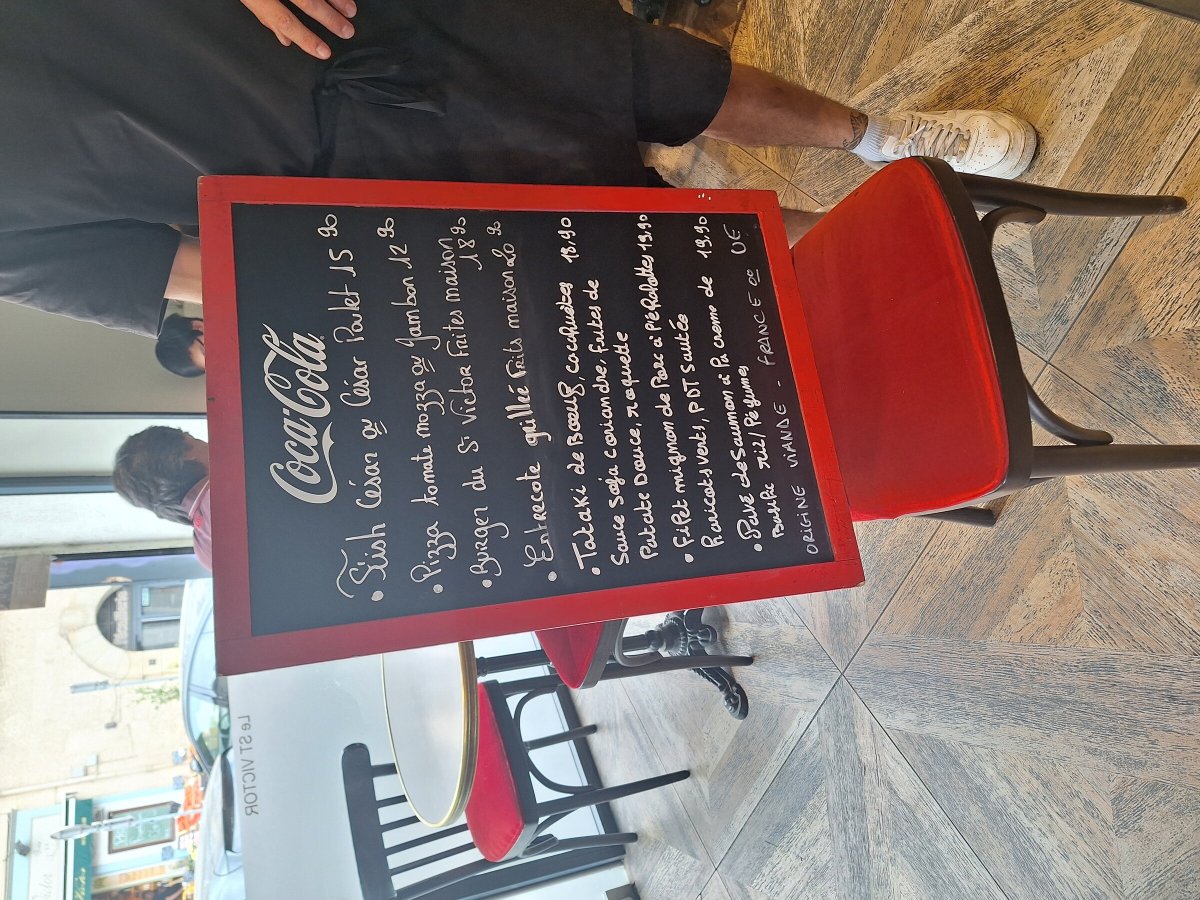 Coca-Cola
• Fish César ou César Poulet 15 90
• Pizza tomate mozza ou Jambon 12 90
• Burger du St Victor Frites maison 18 90
• Entrecote grillée Frits maison 20 90
• Tataki de Bœuf, cacahuètes 18,90
Sauce Soja coriandre, frites de
Patate Douce, roquette
• Filet mignon de Porc à l'échalottes 19,90
Haricots verts, PDT Sautée
• Pavé de Saumon à la creme de 19,90
Basilic riz/légumes
ORIGINE VIANDE - FRANCE ou UE
Le ST VICTOR